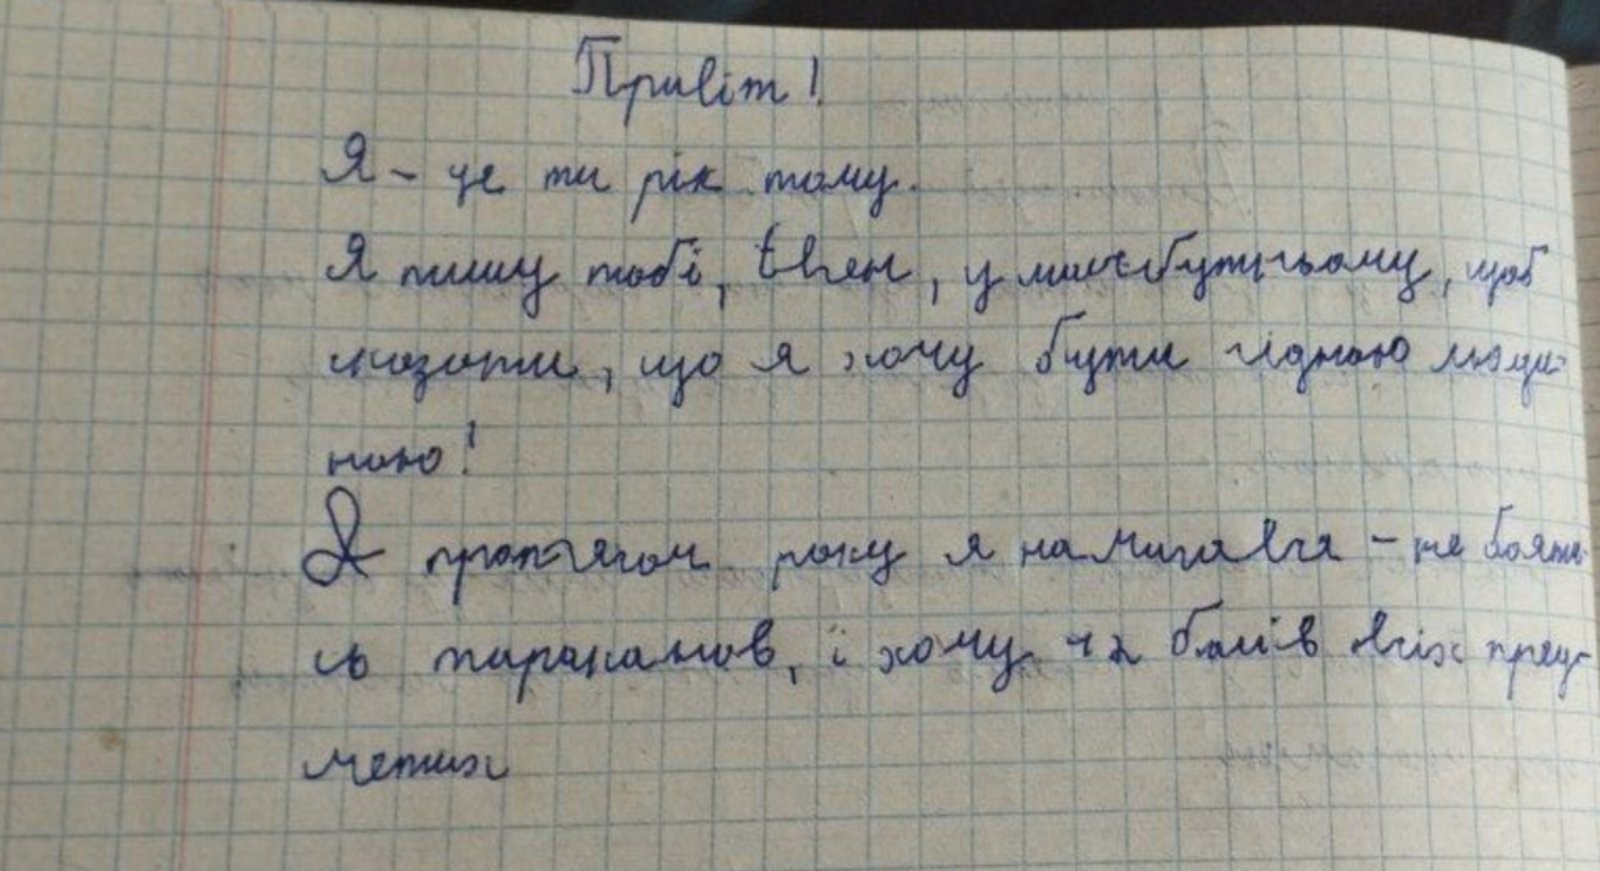 Привіт!
Я - це ти рік тому.
Я пишу тобі, Євген, у майбутньому, щоб
сказати, що я хочу бути гідною люди-
ною!
Я протягом року я намагався - не бояти-
сь тараканов, і хочу 12 балів всіх пред-
метих